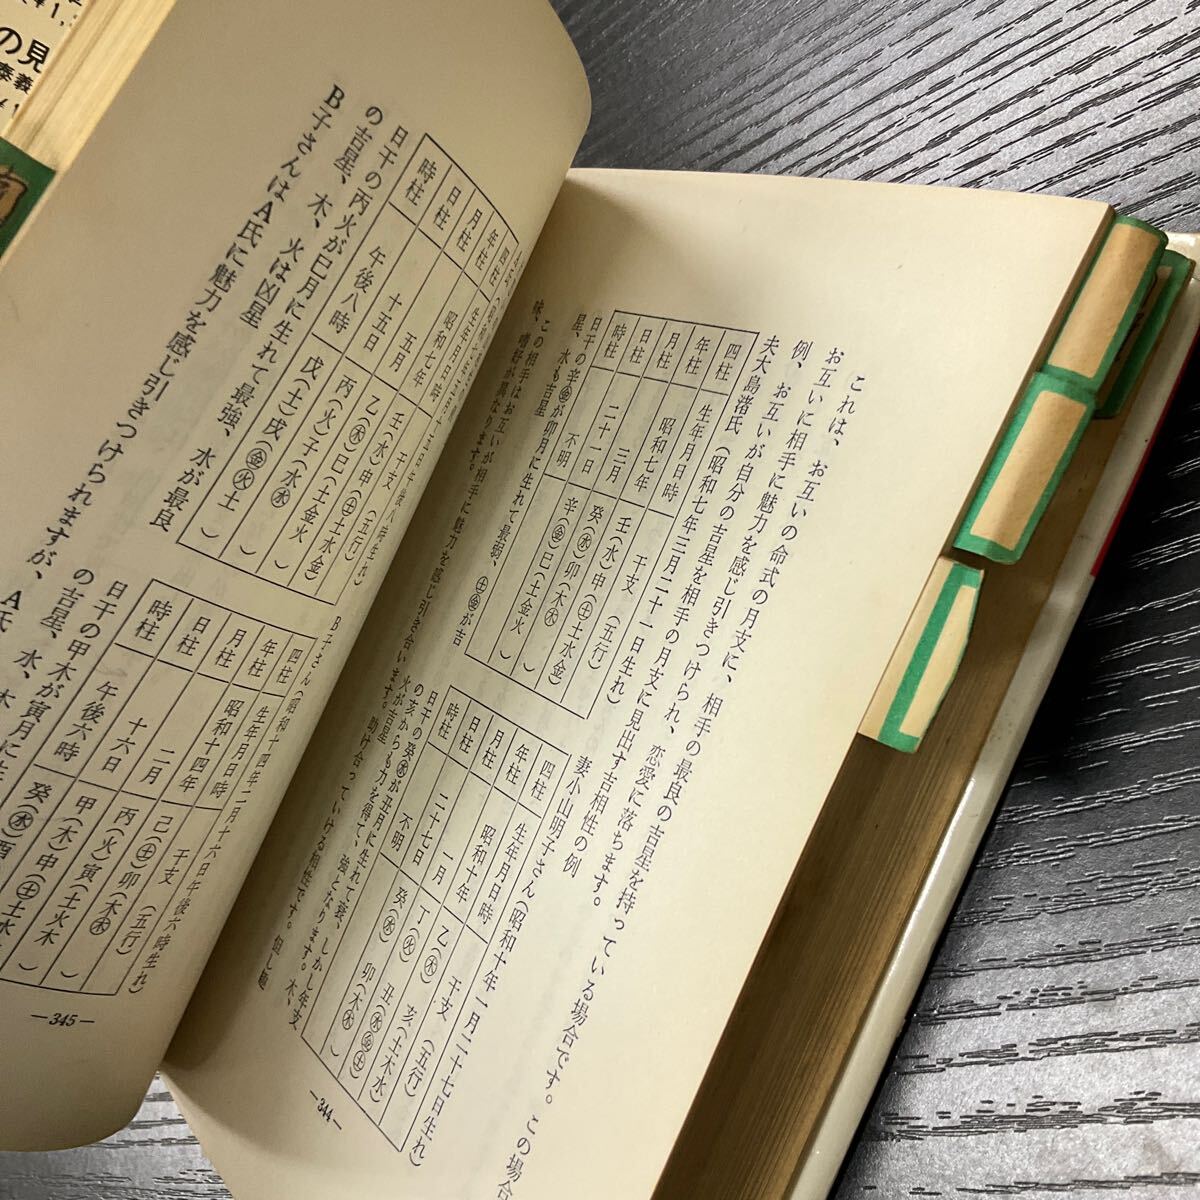 これは、お互いの命式の月支に、相手の最良の吉星を持っている場合です。この場合
お互いに相手に魅力を感じ引きつけられ、恋愛に落ちます。
例、お互いが自分の吉星を相手の月支に見出す吉相性の例
夫大島渚氏(昭和七年三月二十一日生れ)
四柱 生年月日時 干支(五行)
年柱 昭和七年 壬(水)申(土土水金)
月柱 三月 癸(水)卯(木木)
日柱 二十一日 辛(金)巳(土金火)
時柱 不明 ( )
日干の辛金が卯月に生れて最弱、土金が吉
星、水も吉星
妻小山明子さん(昭和十年一月二十七日生れ)
四柱 生年月日時 干支(五行)
年柱 昭和十年 乙(木)亥(土木水)
月柱 一月 丁(火)丑(水金土)
日柱 二十七日 癸(水)卯(木木)
時柱 不明
日干の癸水が丑月に生れて衰、しかし年支
の亥からも力を得て、強となります。木、
火が吉星
この相手はお互いが相手に魅力を感じ引き合います。助け合っていける相性です。但し趣
味、嗜好が異なります。
—344—
四柱 生年月日時 干支(五行)
年柱 昭和七年 壬(水)申(土土水金)
月柱 五月 乙(木)巳(土金火)
日柱 十五日 丙(火)子(水水)
時柱 午後八時 戊(土)戌(金火土)
日干の丙火が巳月に生れて最強、水が最良
の吉星、木、火は凶星
B子さん(昭和十四年二月十六日午後六時生れ)
四柱 生年月日時 干支(五行)
年柱 昭和十四年 己(土)卯(木木)
月柱 二月 丙(火)寅(土火木)
日柱 十六日 甲(木)申(土土水
時柱 午後六時 癸(水)酉
日干の甲木が寅月に
の吉星、水、木
B子さんはA氏に魅力を感じ引きつけられますが、A氏
—345—
の見